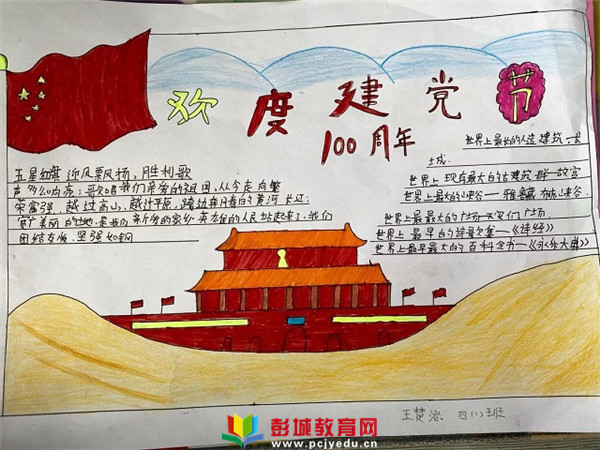 欢度建党节
100周年
五星红旗迎风飘扬,胜利歌
声多么响亮:歌唱我们亲爱的祖国,从今走向繁
荣富强。越过高山,越过平原,跨过奔腾的黄河长江;
宽广美丽的土地,是我们亲爱的家乡,英雄的人民站起来了!我们
团结友爱坚强如钢
世界上最长的人造建筑一长
城:
世界上现存最大的古建筑群一故宫
世界上最大的峡谷一雅鲁藏布大峡谷
世界上最大的广场一天安门广场
世界上最早的诗歌总集一《诗经》
世界上最早最大的百科全书一《永乐大典》
王楚 四(1)班
彭城教育网
www.pcjyedu.cn